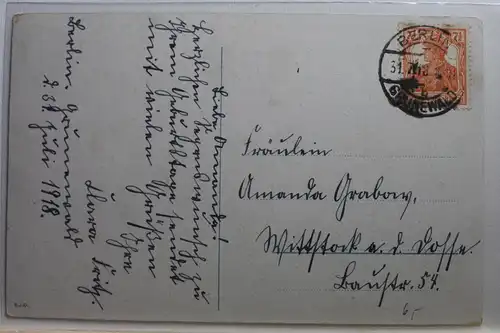 Liebe Amanda!
Herzlichen Segenswunsch zu
Ihrem Geburtstage sendet
mit vielen Grüßen
Ihre
Klara
Berlin Grunewald
d. 31 Juli 1918.
BERLIN
GRUNEWALD
Fräulein
Amanda Grabow,
Wittstock a. d. Dosse.
Baustr. 54.